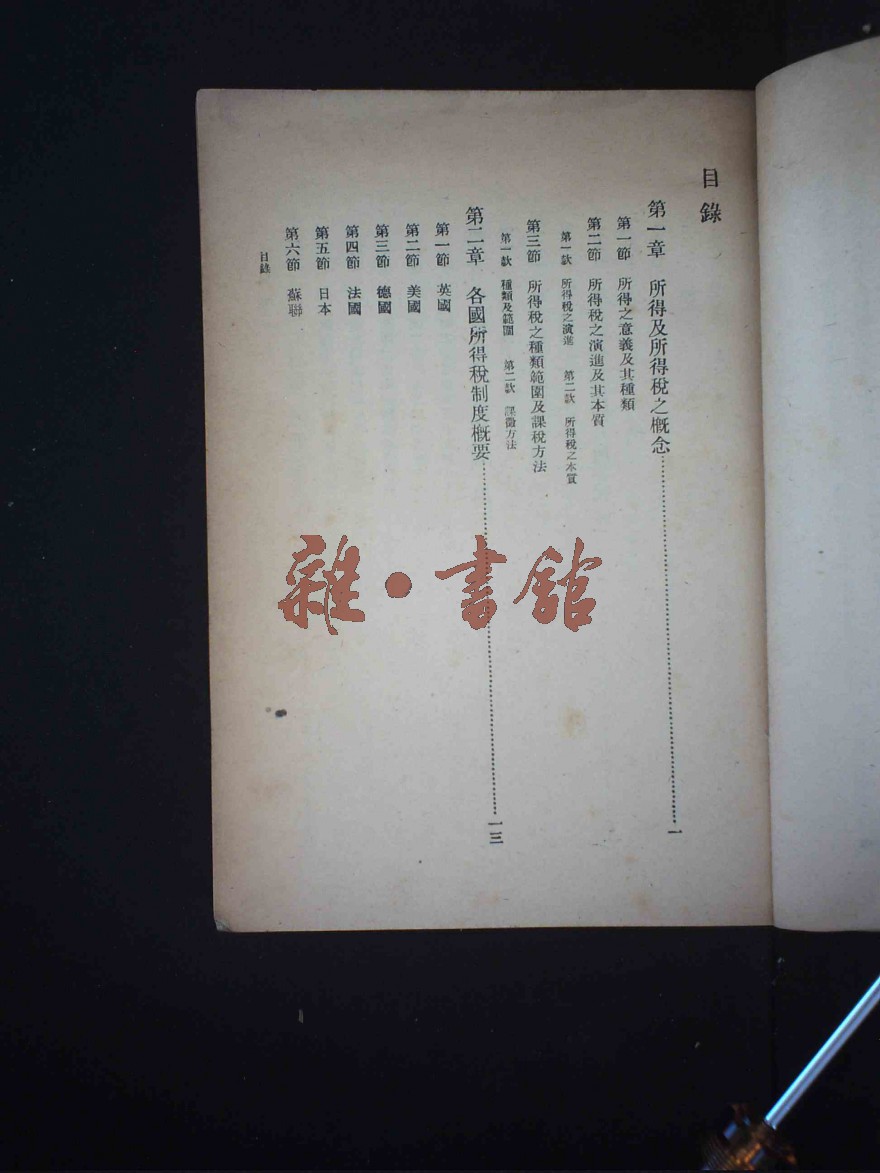 目錄
第一章　所得及所得稅之概念……一
第一節　所得之意義及其種類
第二節　所得稅之演進及其本質
第一款　所得稅之演進　第二款　所得稅之本質
第三節　所得稅之種類範圍及課稅方法
第一款　種類及範圍　第二款　課徵方法
第二章　各國所得稅制度概要……一三
第一節　英國
第二節　美國
第三節　德國
第四節　法國
第五節　日本
第六節　蘇聯
目錄
雜·書館